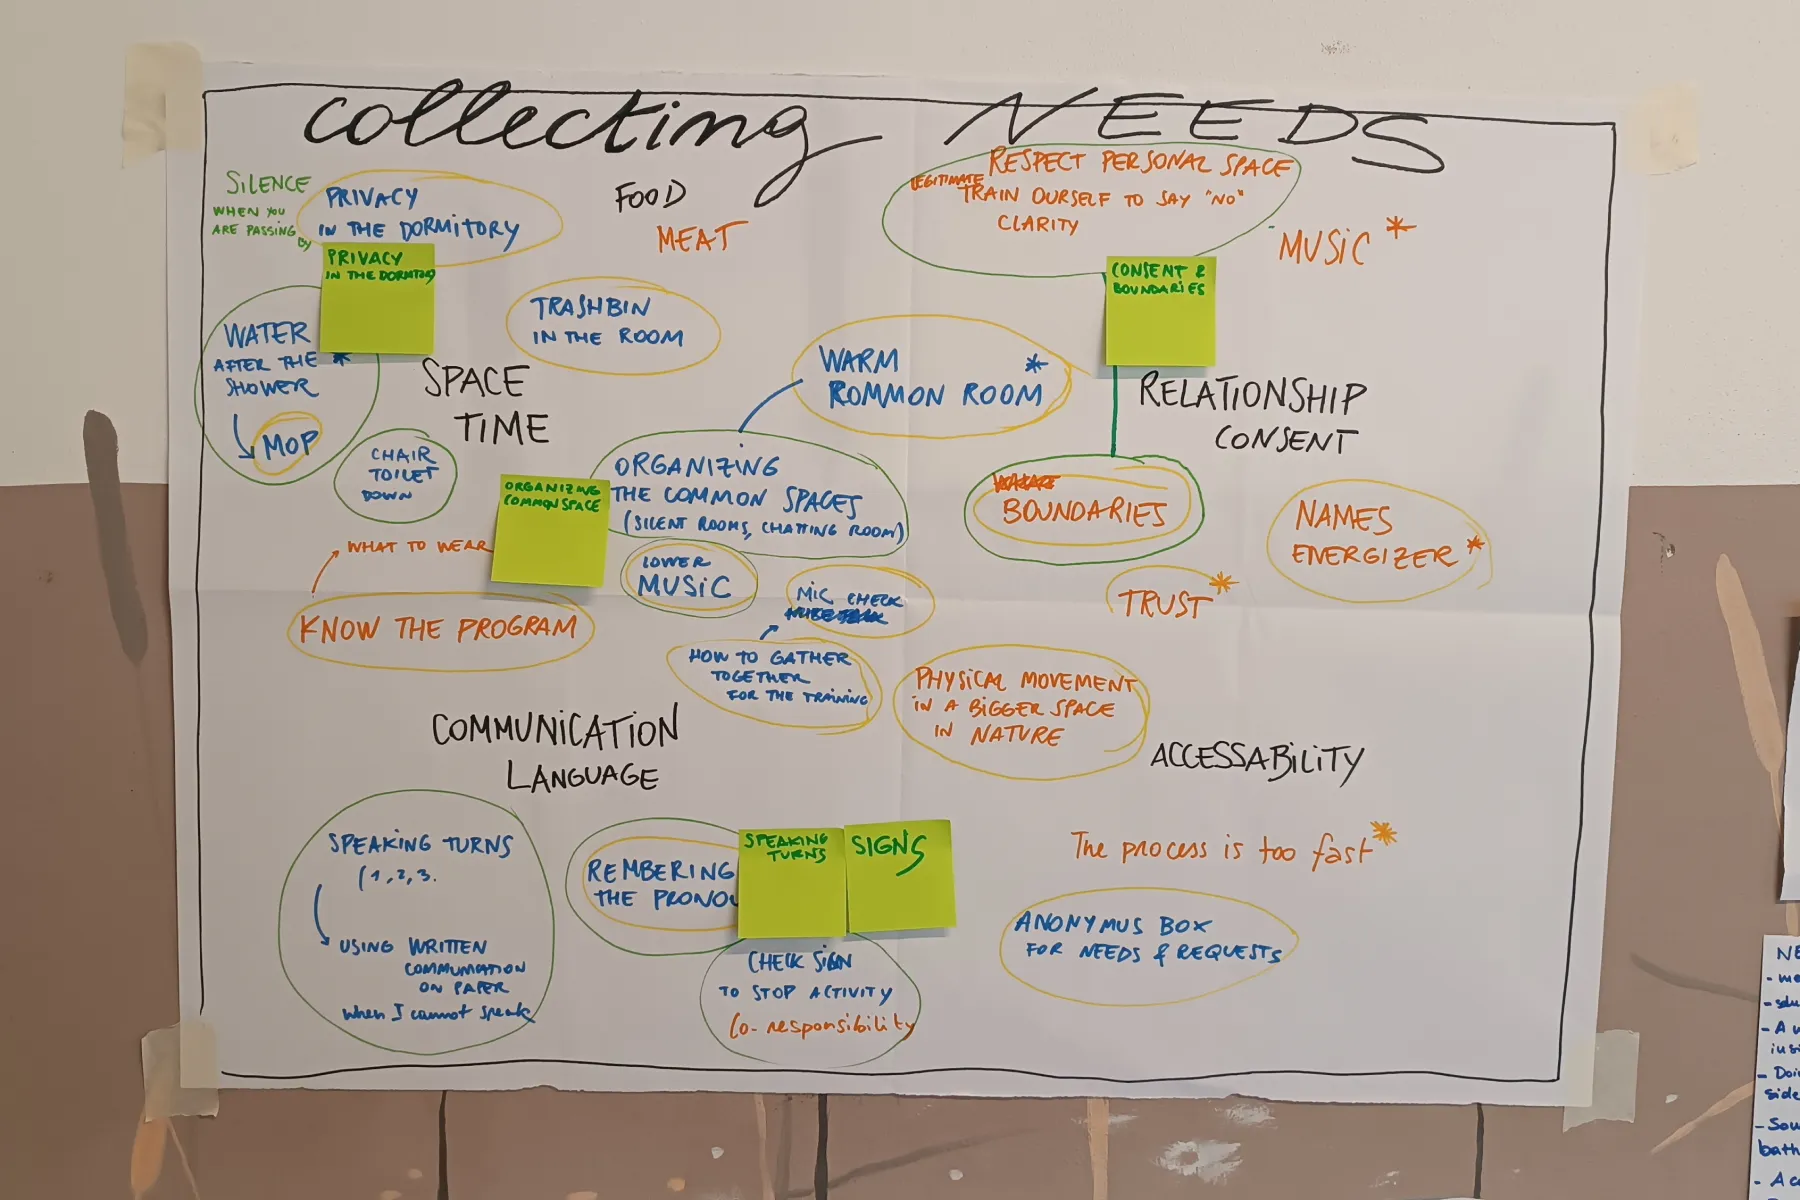 collecting NEEDS
SILENCE
WHEN YOU
ARE PASSING
BY
PRIVACY
IN THE DORMITORY
PRIVACY
IN THE DORMITORY
FOOD
MEAT
RESPECT PERSONAL SPACE
LEGITIMATE TRAIN OURSELF TO SAY "NO"
CLARITY
MUSIC *
CONSENT &
BOUNDARIES
WATER
AFTER THE *
SHOWER
MOP
TRASHBIN
IN THE ROOM
SPACE
TIME
CHAIR
TOILET
DOWN
WARM *
ROMMON ROOM
RELATIONSHIP
CONSENT
ORGANIZING
COMMON SPACE
ORGANIZING
THE COMMON SPACES
(SILENT ROOMS, CHATTING ROOM)
BOUNDARIES
NAMES
ENERGIZER *
WHAT TO WEAR
KNOW THE PROGRAM
LOWER
MUSIC
MIC CHECK
TRUST *
HOW TO GATHER
TOGETHER
FOR THE TRAINING
PHYSICAL MOVEMENT
IN A BIGGER SPACE
IN NATURE
COMMUNICATION
LANGUAGE
ACCESSABILITY
SPEAKING TURNS
(1,2,3.
USING WRITTEN
COMMUMATION
ON PAPER
when I cannot speak
REMBERING
THE PRONOU
SPEAKING
TURNS
SIGNS
CHECK SIGN
TO STOP ACTIVITY
Co-responsibility
The process is too fast *
ANONYMUS BOX
FOR NEEDS & REQUESTS
NE
- A
- Doi
side
- Sou
bath